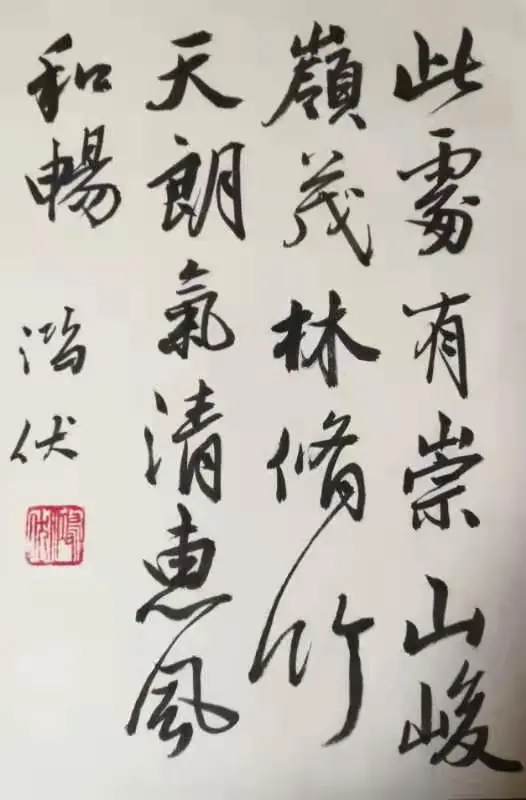 此處有崇山峻
嶺茂林脩竹
天朗氣清惠風
和暢
伏